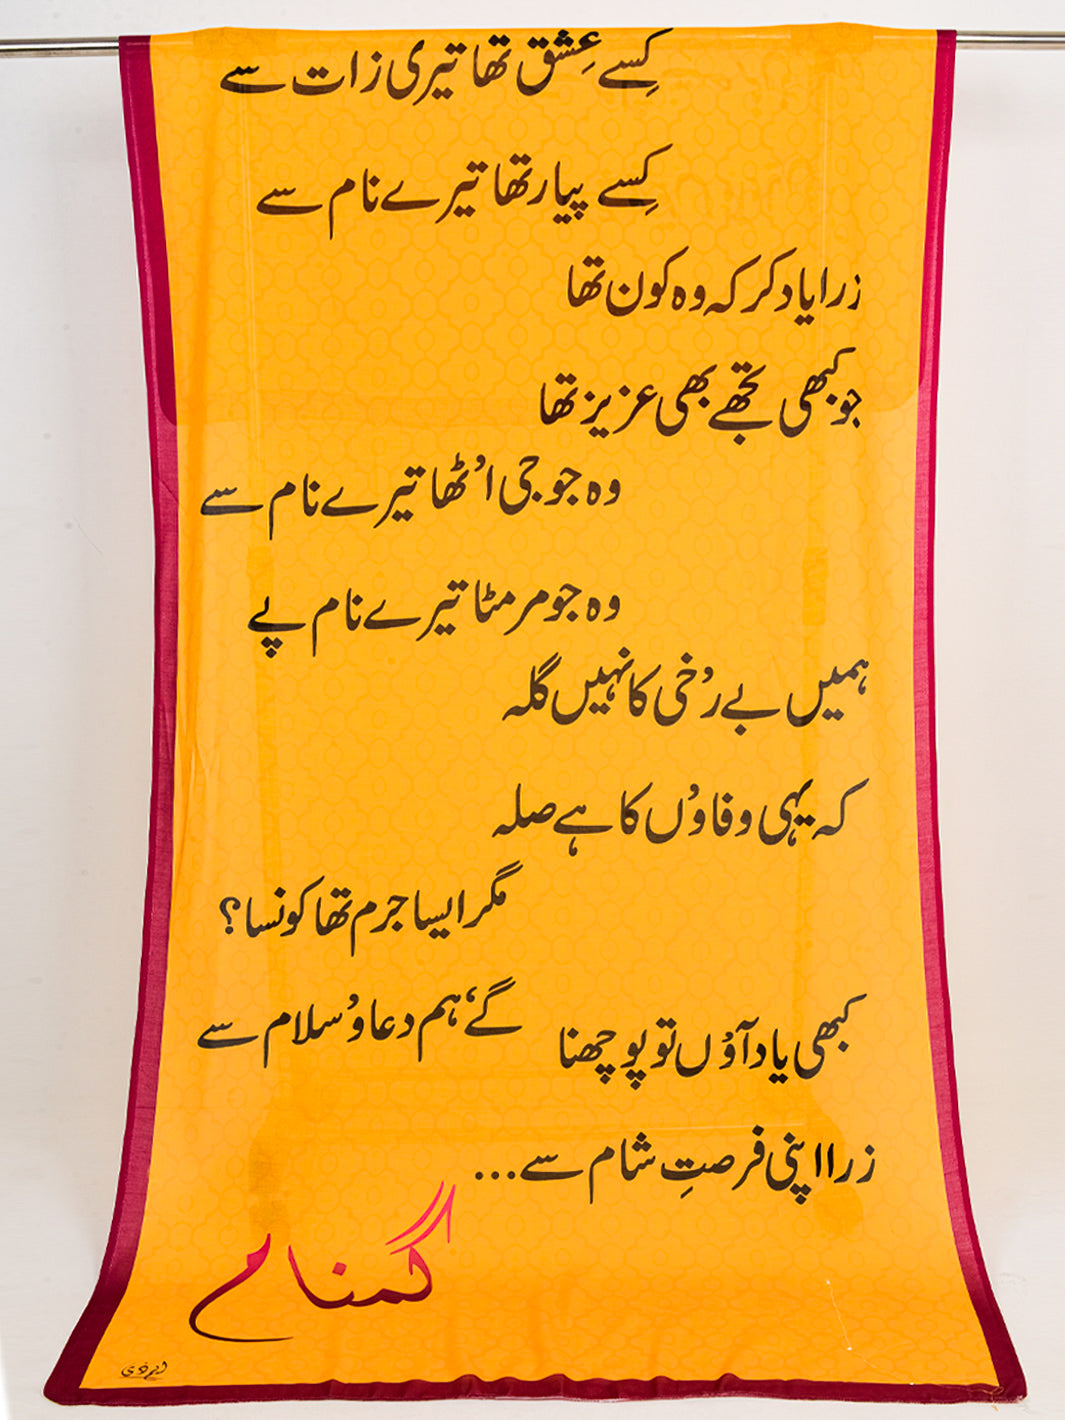 کِسے عِشق تھا تیری زات سے
کِسے پیار تھا تیرے نام سے
زرا یاد کر کہ وہ کون تھا
جو کبھی تجھے بھی عزیز تھا
وہ جو جی اُٹھا تیرے نام سے
وہ جو مر مٹا تیرے نام پے
ہمیں بے رُخی کا نہیں گلہ
کہ یہی وفاوُں کا ہے صلہ
مگر ایسا جرم تھا کونسا؟
گےٗ ہم دعا وُ سلام سے
کبھی یاد آوُں تو پوچھنا
زرا اپنی فرصتِ شام سے...
گمنام